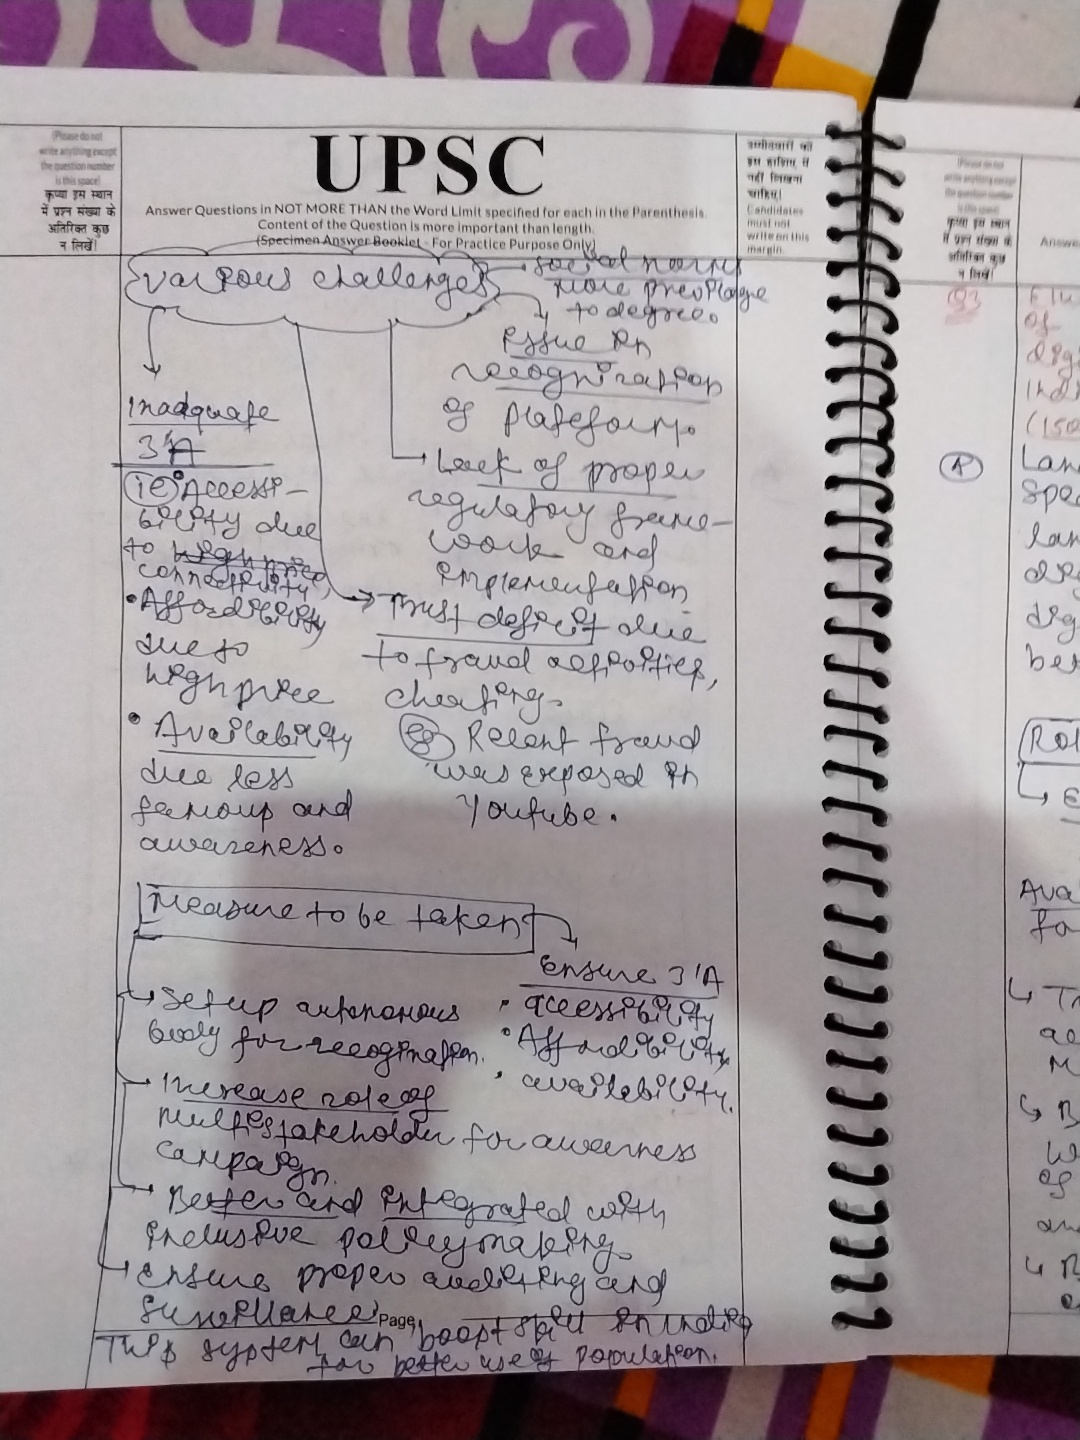 (Please do not
write anything except
the question number
is this space)
कृप्या इस स्थान
में प्रश्न संख्या के
अतिरिक्त कुछ
न लिखें।
UPSC
Answer Questions in NOT MORE THAN the Word Limit specified for each in the Parenthesis.
Content of the Question is more important than length.
(Specimen Answer Booklet - For Practice Purpose Only)
उम्मीदवारों को
इस हाशिए में
नहीं लिखना
चाहिए।
Candidates
must not
write on this
margin.
Various challenges
social norms
more
to degree.
Issue in
recognization
of plateform.
Inadquate
3'A
ie Accessi-
bility due
to
connectivity,
• Affordibility
due to
high price
• Availability
due less
famous and
awareness.
Lack of proper
regulatory frame-
work and
implementation
Trust deficit due
to fraud activities,
cheating.
eg Recent fraud
was exposed in
Youtube.
Measure to be taken
Ensure 3'A
• accessibility
• Affordibility
• availebility.
Set up autonomous
body for recogination.
Increase role of
multistakeholder for awarness
campaign.
Better and integrated with
inclusive policymaking
Ensure proper auditing and
Surveillance
Page
This system can boost skill in India
for better use of population.
(Please do not
write anything except
the question number
is this space)
कृप्या इस स्थान
में प्रश्न संख्या के
अतिरिक्त कुछ
न लिखें।
Answe
Q3
of
dig
Indi
(150
A
Lan
Spe
lan
dig
dig
be
Rol
Ava
fo
of
an